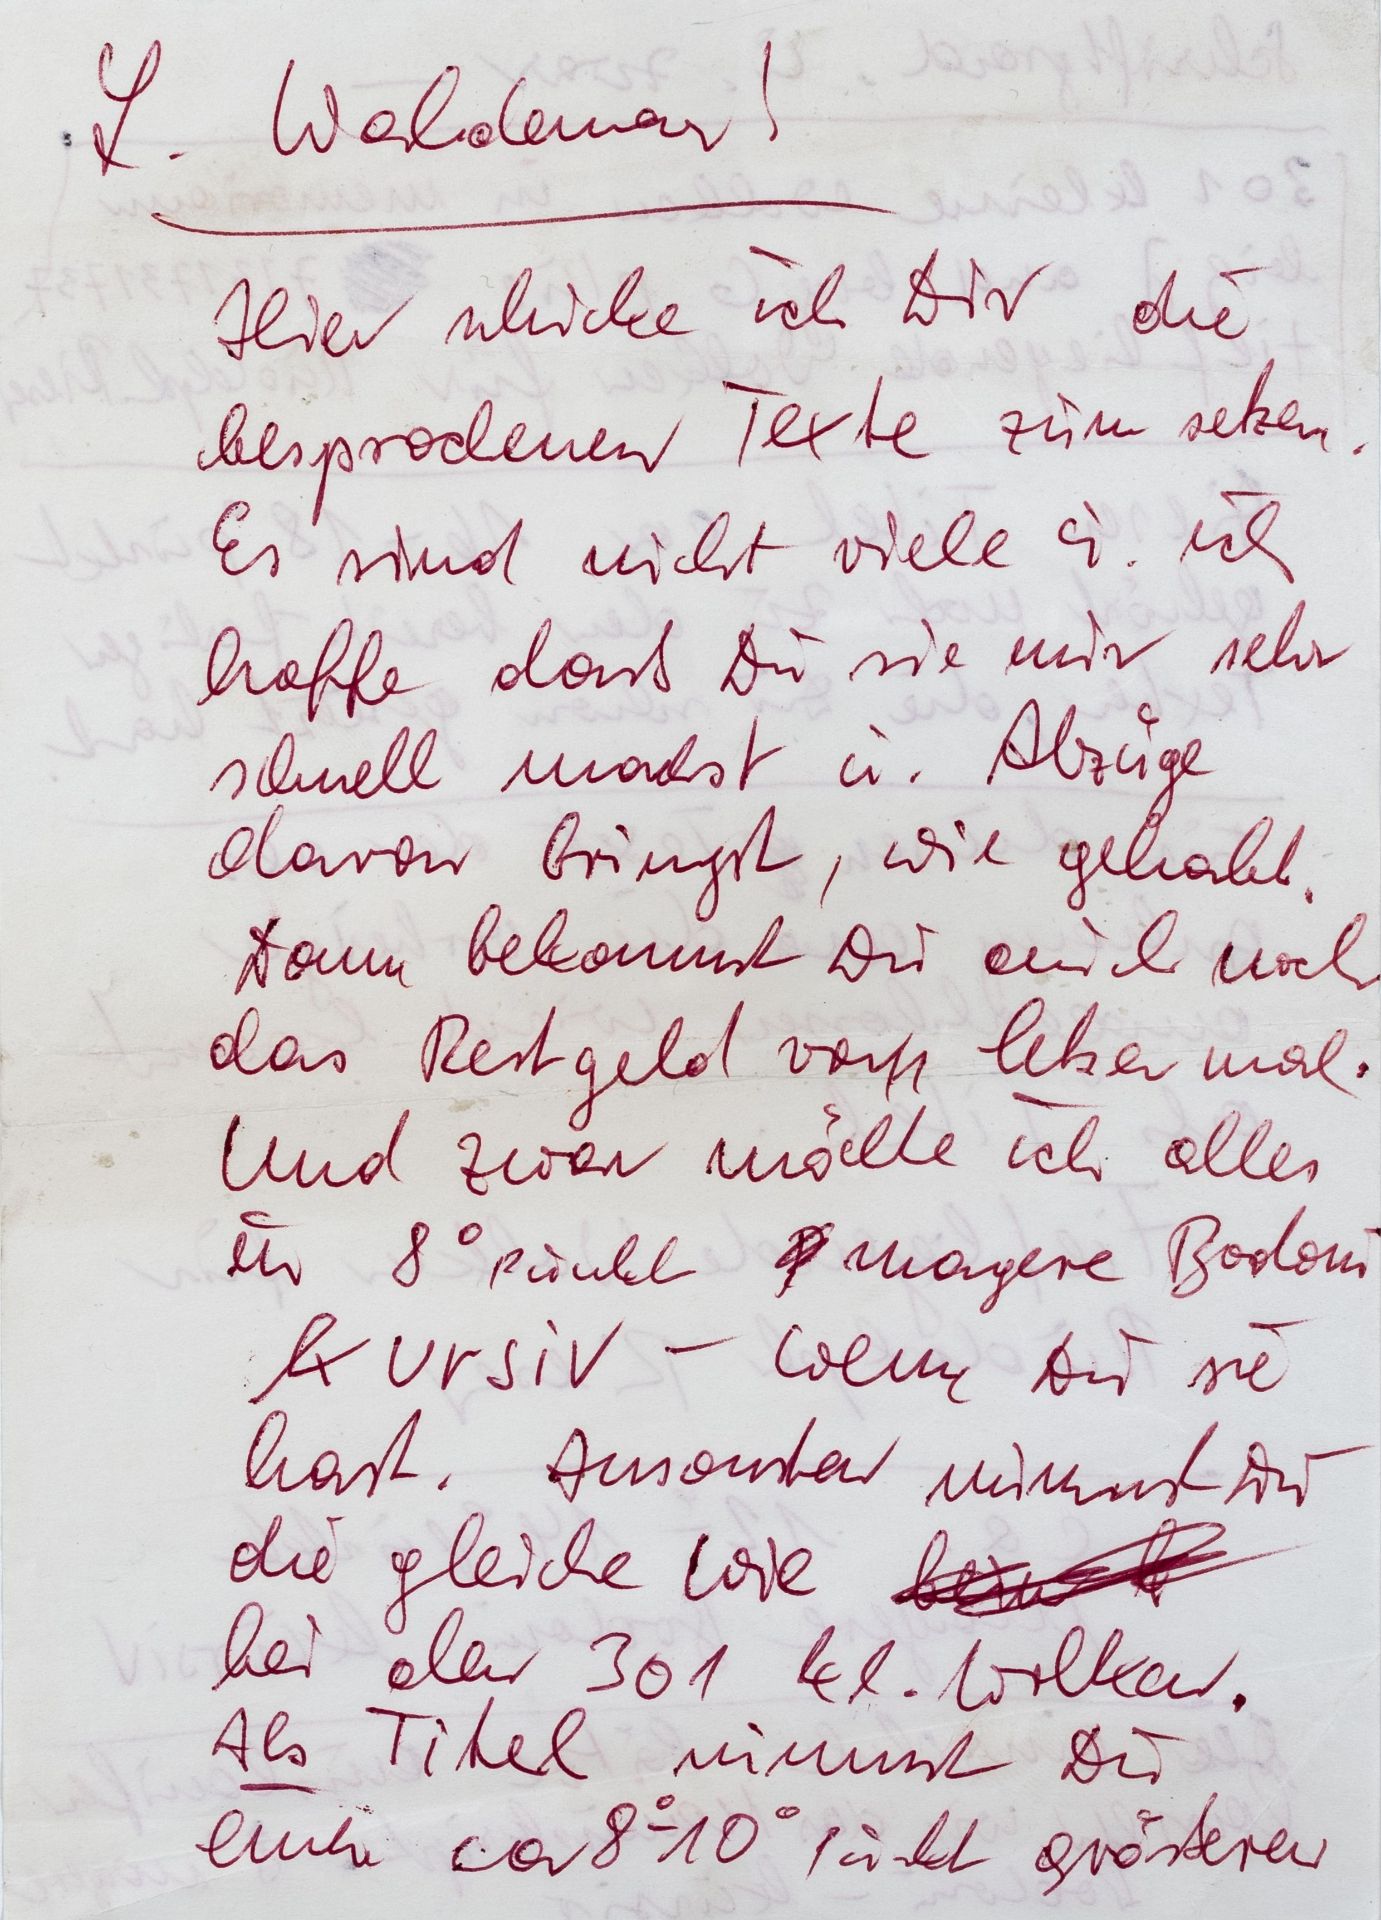 L. Waldemar!
Hier schicke ich Dir die
besprochenen Texte zum setzen.
Es sind nicht viele u. ich
hoffe dass Du sie mir sehr
schnell machst u. Abzüge
davon bringst, wie gehabt.
Dann bekommst Du auch noch
das Restgeld vom letzen mal.
Und zwar möchte ich alles
in 8° Punkt magere Bodoni
kursiv – wenn Du sie
hast. Ansonsten nimmst Du
die gleiche wie
bei den 301 kl. Wolken.
Als Titel nimmst Du
einen ca 8°-10° Punkt grösseren